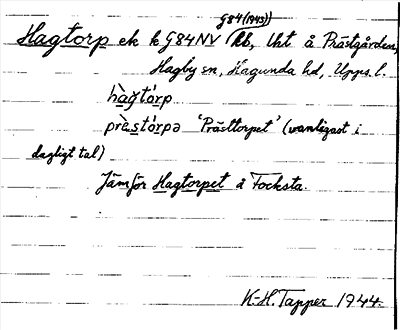 G84(1943))
Hagtorp ek k G84NV kb, Uht å Prästgården,
Hagby sn, Hagunda hd, Upps. l.
hàgtórp
prä̀stórpə 'Prästtorpet' (vanligast i
dagligt tal)
Jämför Hagtorpet å Focksta.
K-H. Tapper 1944.